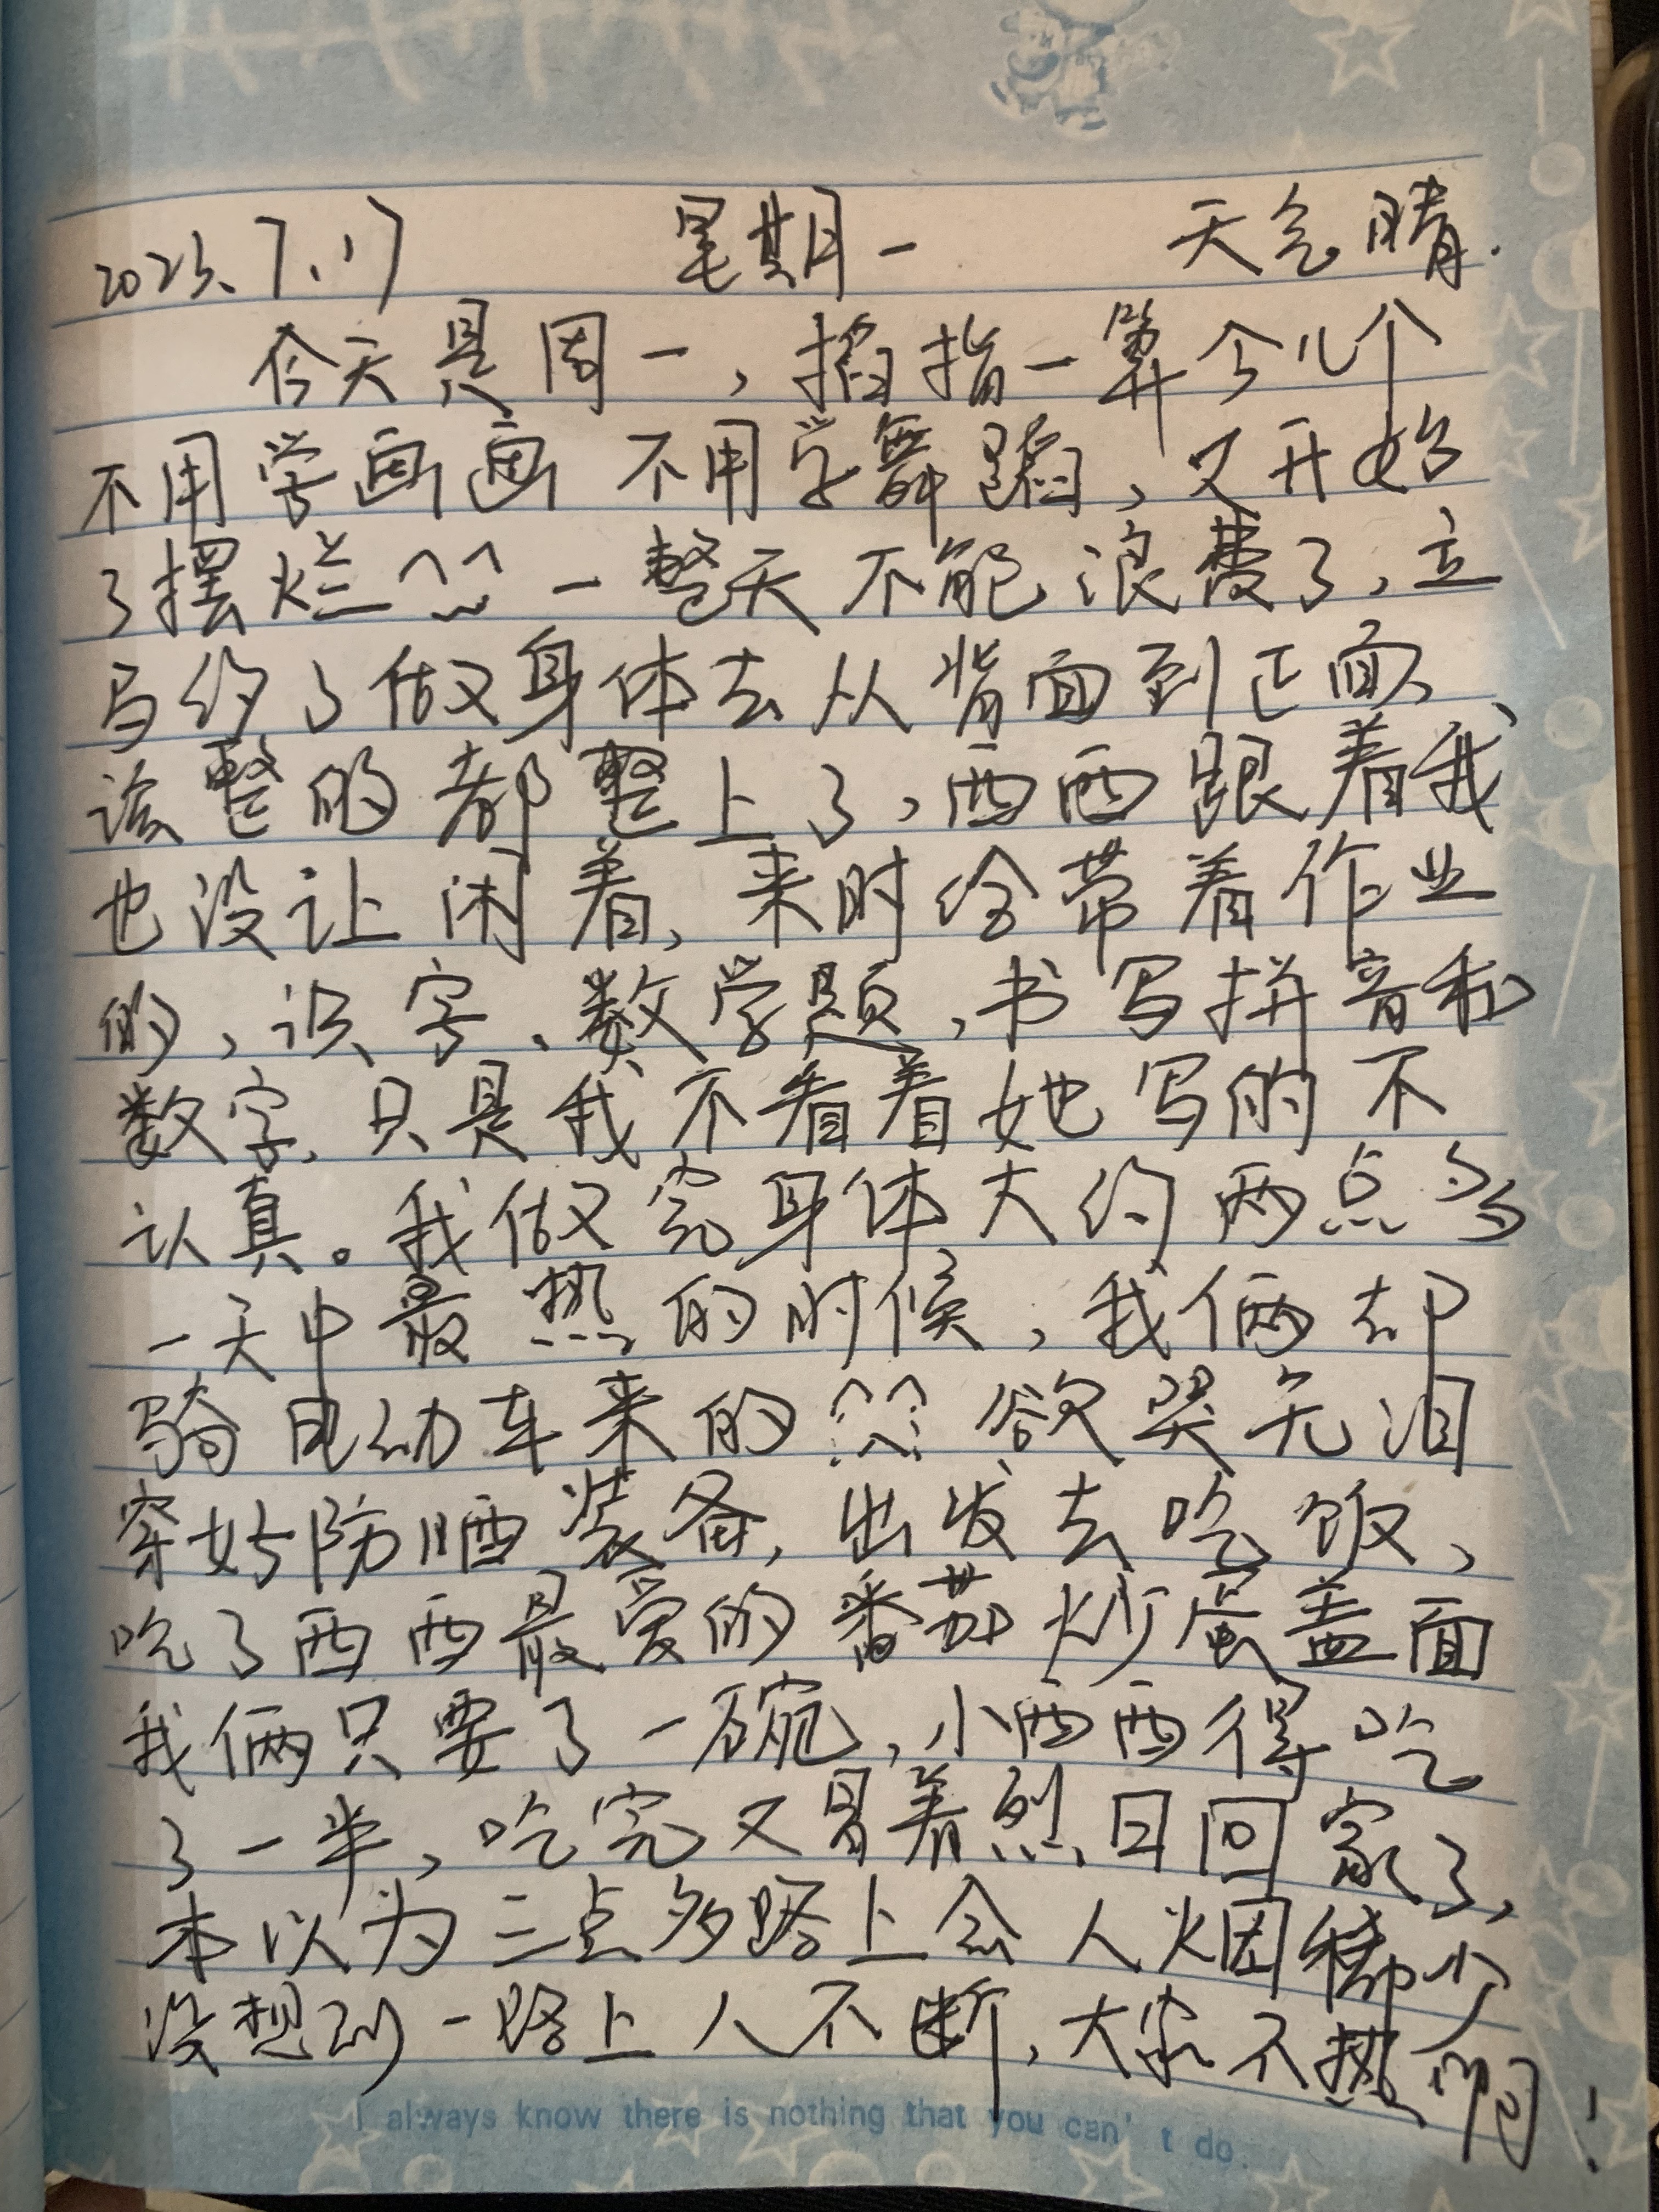 2023.7.17 星期一 天气晴.
今天是周一,掐指一算今儿个
不用学画画 不用学舞蹈,又开始
了摆烂^^ 一整天不能浪费了,立
马约了做身体去从背面到正面、
该整的都整上了,西西跟着我
也没让闲着,来时给带着作业
的,识字、数学题,书写拼音和
数字,只是我不看着她写的不
认真。我做完身体大约两点多
一天中最热的时候,我俩却
骑电动车来的 欲哭无泪
穿好防晒装备,出发去吃饭,
吃了西西最爱的番茄炒蛋盖面
我俩只要了一碗,小西西得吃
了一半,吃完又冒着烈日回家了,
本以为三点多路上会人烟稀少
没想到一路上人不断,大家不热吗!
I always know there is nothing that you can't do.